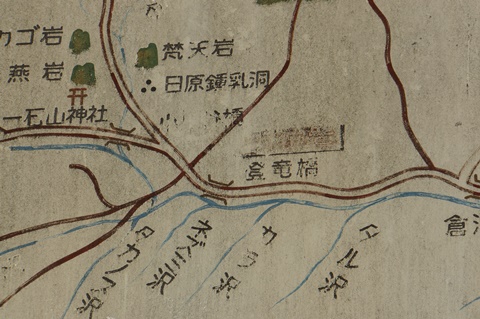 カゴ岩
燕岩
梵天岩
日原鍾乳洞
一石山神社
小川橋
登竜橋
タカノス沢
ネズミ沢
カラ沢
タル沢
倉沢